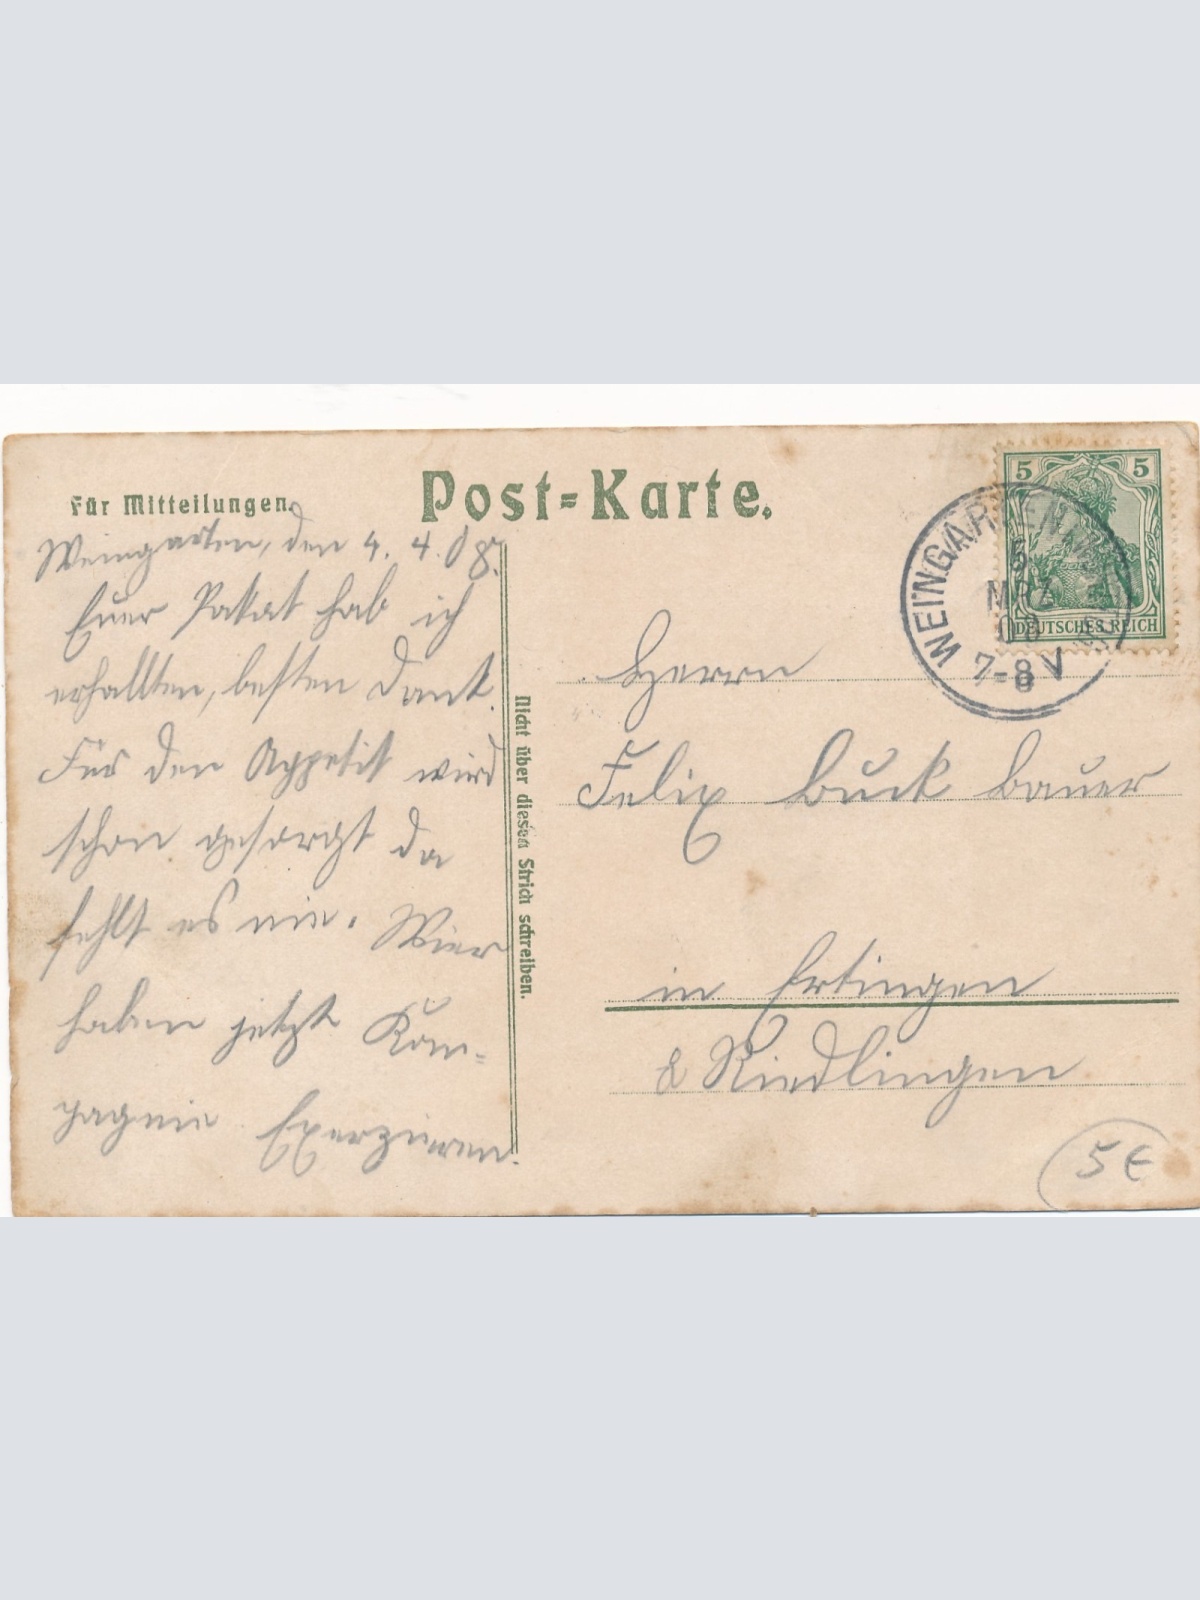 Für Mitteilungen.
Post-Karte.
Weingarten, den 4. 4. 08.
Euer Paket hab ich
erhallten, besten Dank.
Für den Appetit wird
schon gesorgt da
fehlt es nie. Wier
haben jetzt Kom-
pagnie Exerzieren.
Nicht über diesen Strich schreiben.
5 5
DEUTSCHES REICH
WEINGARTEN
5
MRZ
08
7-8 V
Herrn
Felix Buck Bauer
in Ertingen
Riedlingen
5 €